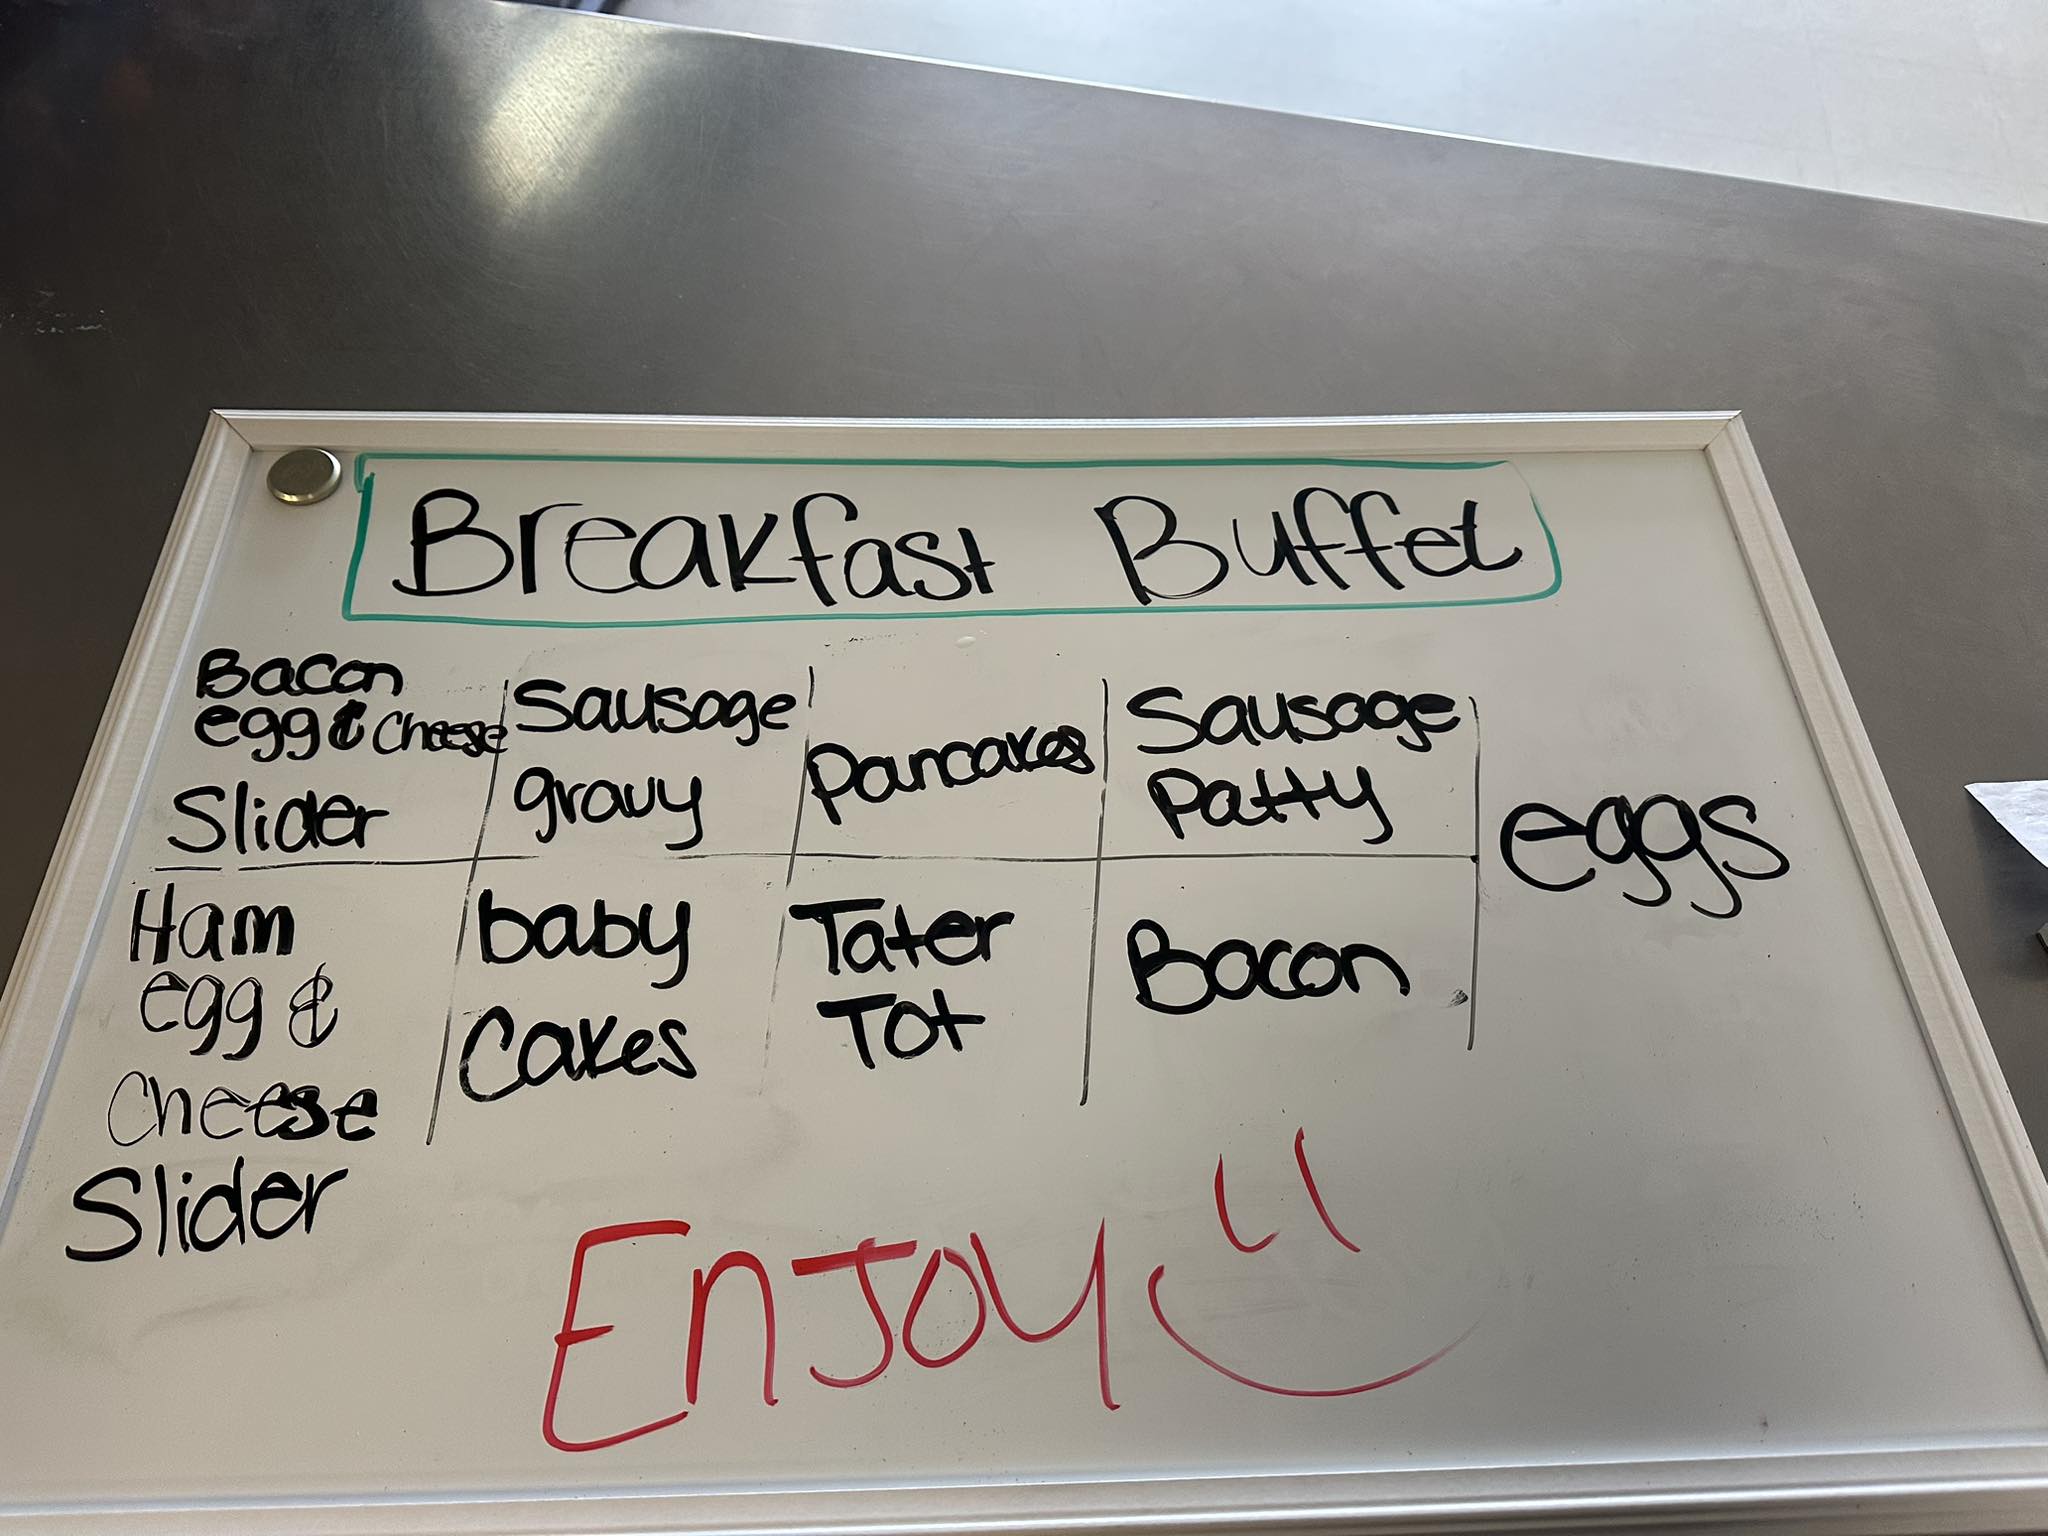 Breakfast Buffet
Bacon
egg & Cheese
Slider
Sausage
gravy
Pancakes
Sausage
Patty
eggs
Ham
egg &
Cheese
Slider
baby
Cakes
Tater
Tot
Bacon
EnJoy